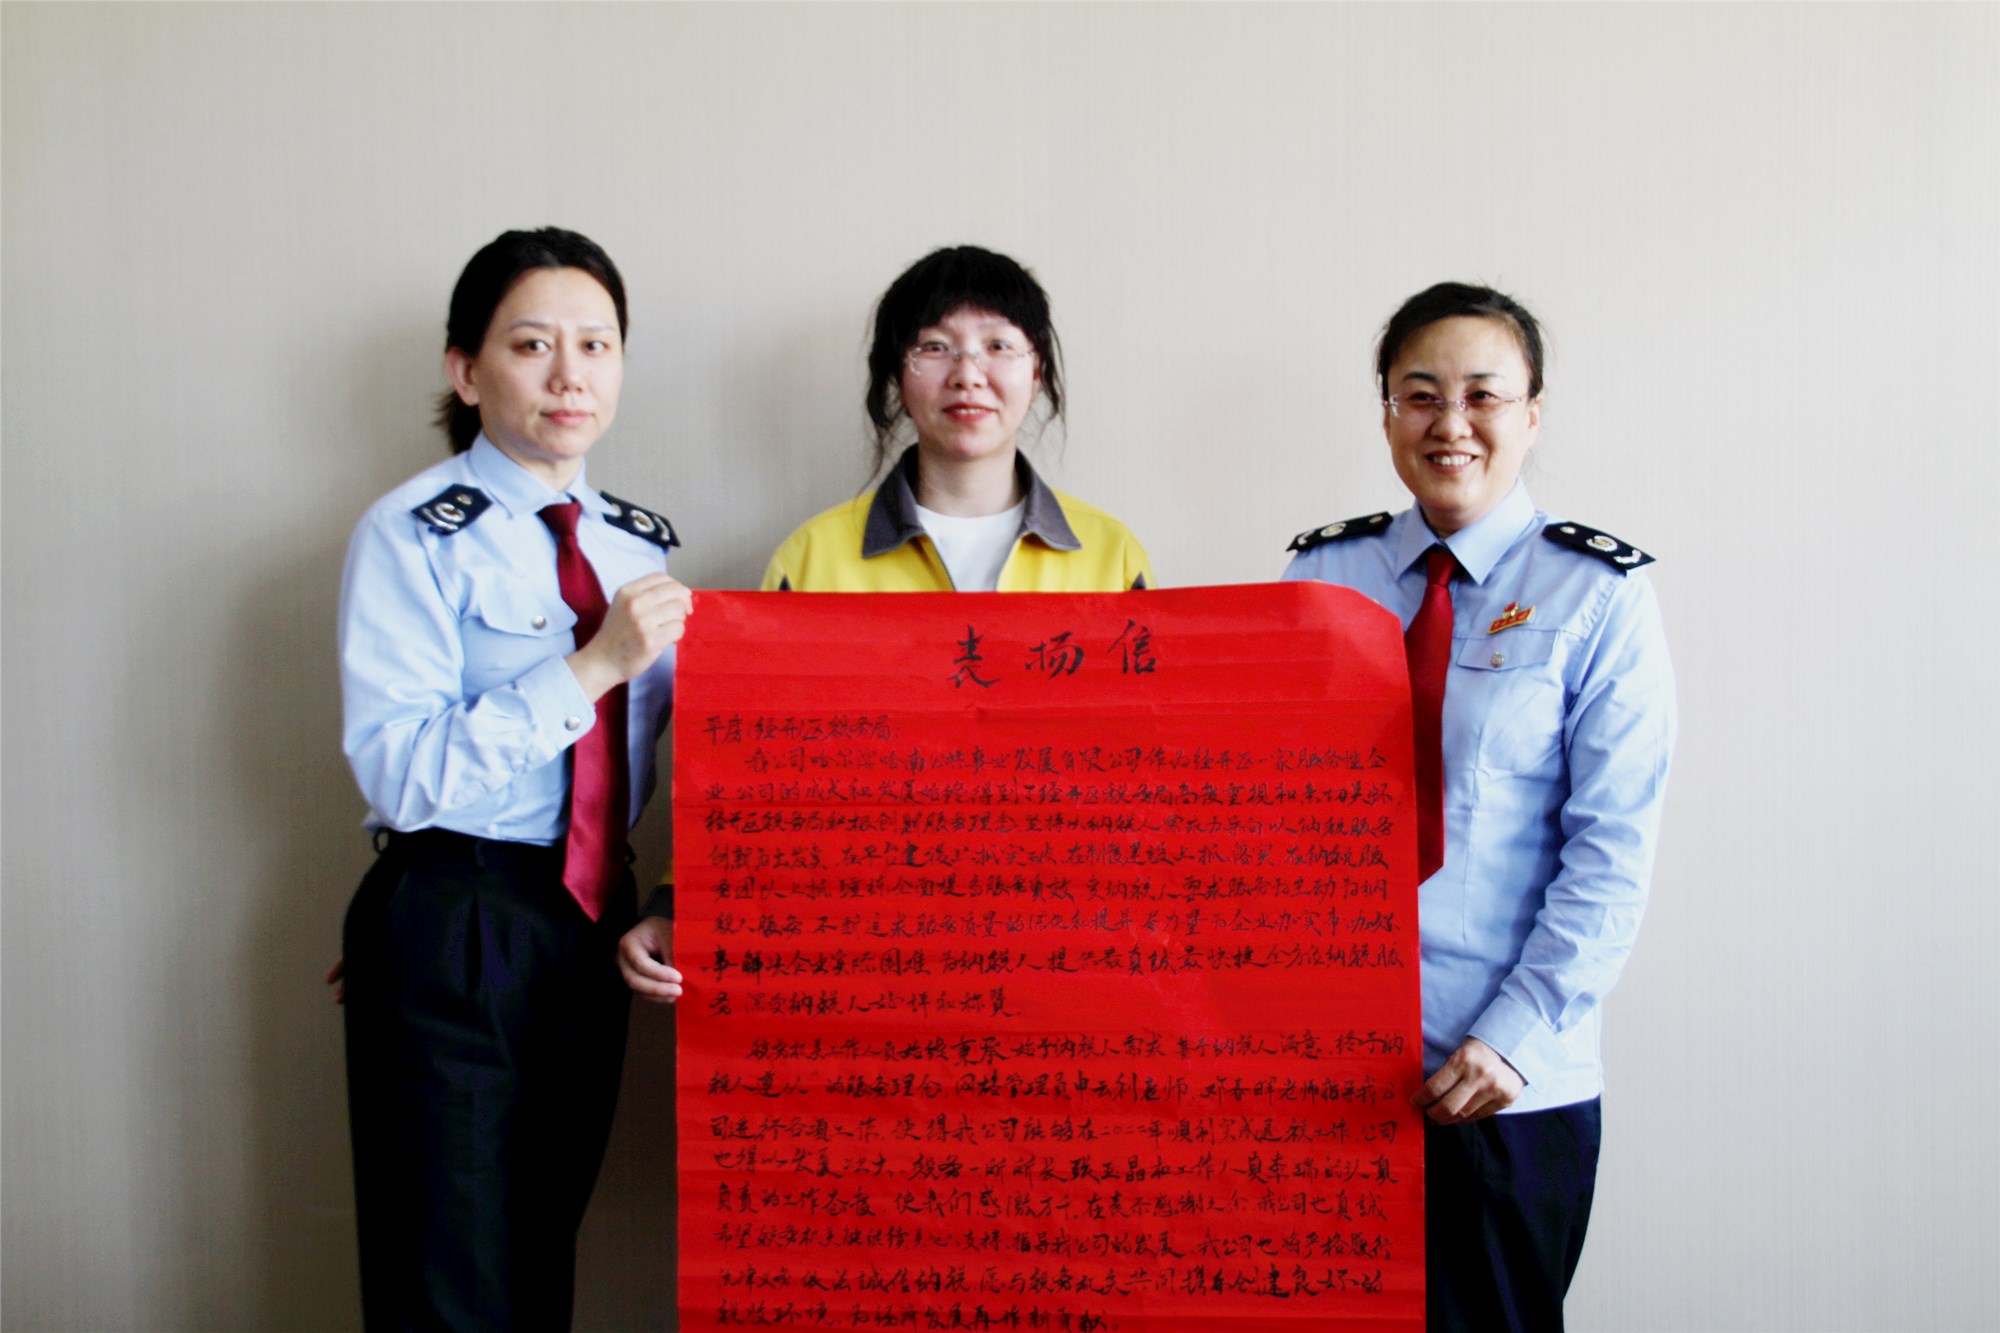 表扬信
平房(经开)区税务局:
我公司哈尔滨哈南公共事业发展有限公司作为经开区一家服务性企
业,公司的成长和发展始终得到了经开区税务局高度重视和亲切关怀,
经开区税务局积极创新服务理念,坚持以纳税人需求为导向以纳税服务
创新为出发点,在平台建设上抓突破,在制度建设上抓落实,在纳税服
务团队上抓全面提高服务质效,变纳税人要求服务为主动为纳
税人服务,不断追求服务质量的优化和提升,尽力量为企业办实事,办好
事,解决企业实际困难,为纳税人提供最真誠最快捷全方位纳税服
务,深受纳税人好评和称赞。
税务机关工作人员始终秉承"始于纳税人需求,基于纳税人满意,终于纳
税人遵从"的服务理念,网格管理员申云利老师,邓春晖老师指导我公
司进行各项工作,使得我公司能够在二〇二二年顺利完成退税工作,公司
也得以发展壮大。税务一所所长张玉晶和工作人员李瑞的认真
负责的工作态度,使我们感激万千,在表示感谢之余,我公司也真誠
希望税务机关继续关心,支持,指导我公司的发展,我公司也将严格履行
法律义务,依法誠信纳税,愿与税务机关共同携手创建良好的
税收环境,为经济发展再作新贡献。